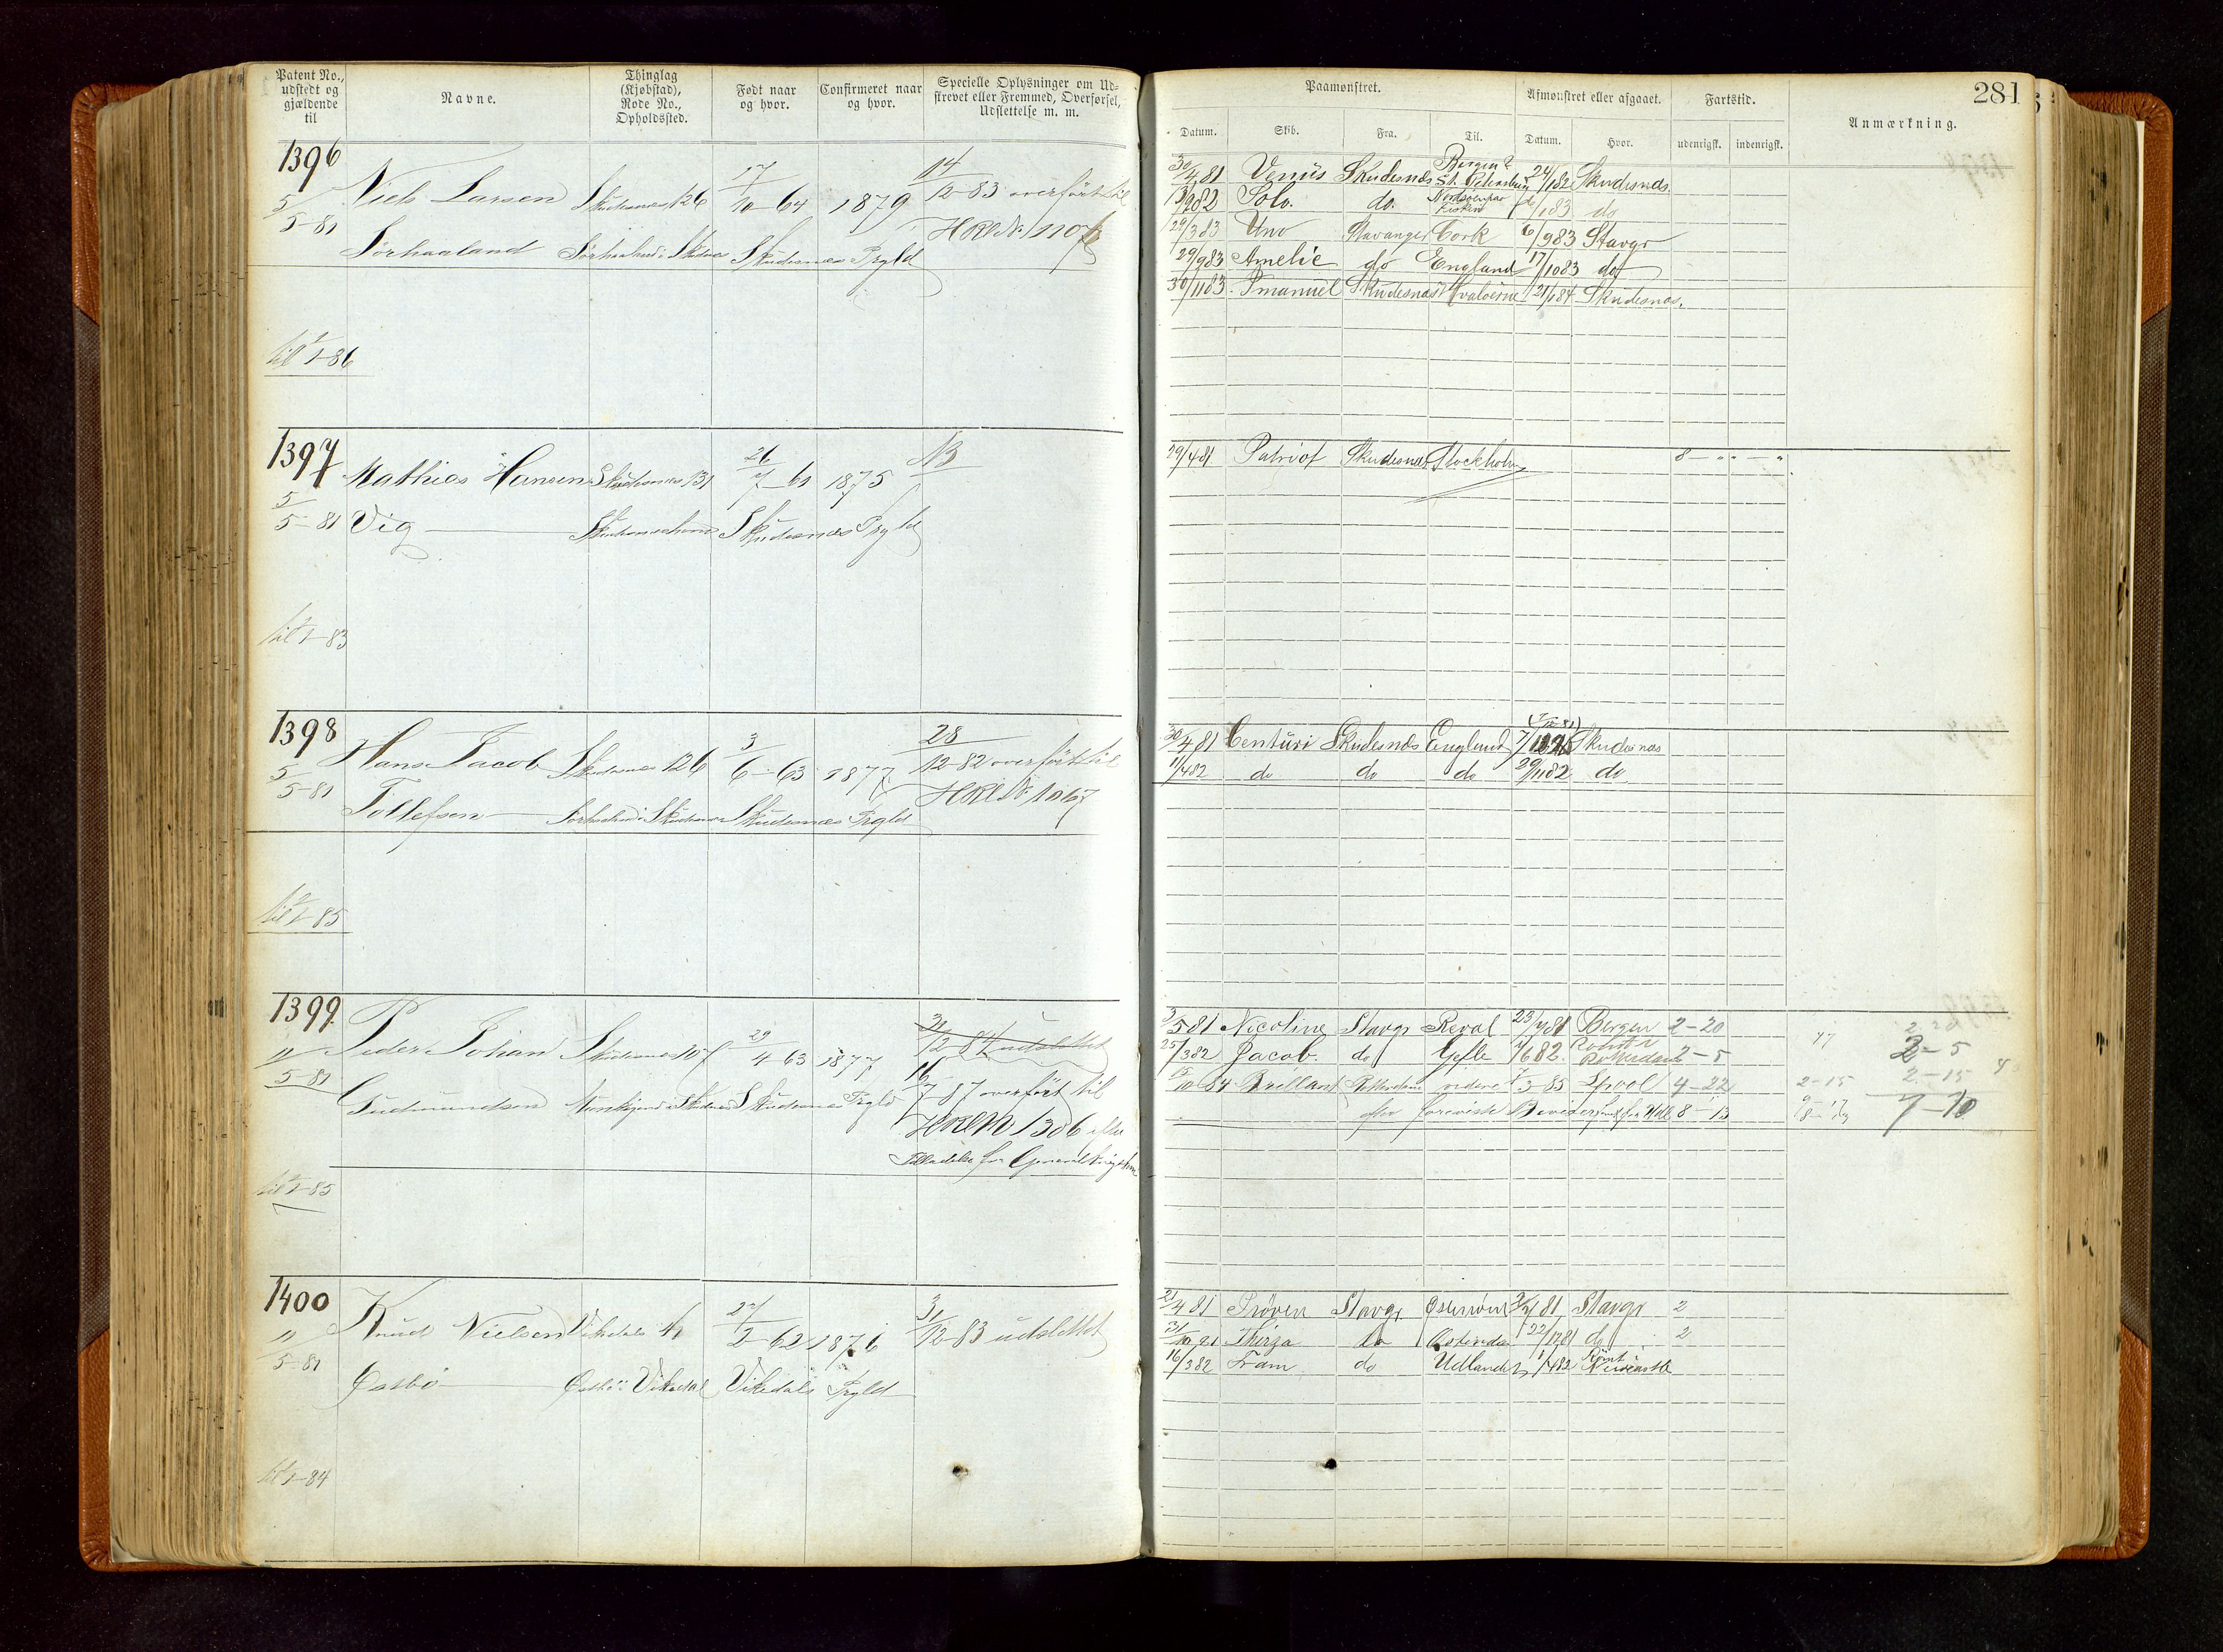 Patent No., udstedt og gjældende til
Navne.
Thinglag (Kjøbstad), Rode No., Opholdssted.
Født naar og hvor.
Confirmeret naar og hvor.
Specielle Oplysninger om Udskrevet eller Fremmed, Overførsel, Udslettelse m. m.
1396
5/5-81
Niels Larsen
Skudesnes 126
17/10-64
1879
14/12-83 overført til
Sørhaaland
Skudesnes Prgld
HRL No 1107
til 1/1-86
1397
5/5-81
Mathias Hansen
Skudesnes 131
26/7-61
1875
NB
Vig
Skudesnes Prgld
til 1/1-83
1398
5/5-81
Hans Jacob
Skudesnes 126
3/6-63
1877
28/12-82 overført til
Tollefsen
Skudesnes Prgld
HRL No 1067
til 1/1-85
1399
11/5-81
Peder Johan
Skudesnes 107
29/4 63
1877
31/12-84 udslettet
16/7-87 overført til
Gudmundsen
Skudesnes Prgld
HRL No 1306 efter
Tilladelse fra
til 1/1-85
1400
11/5-81
Knud Nielsen
Vikedals 4
2-62
1876
31/12-83 udslettet
Øasbø
Vikedal
Vikedals Prgld
til 1/1-84
281
Paamønstret.
Afmønstret eller afgaaet.
Fartstid.
Anmærkning.
Datum.
Skib.
Fra.
Til.
Datum.
Hvor.
udenrigsk.
indenrigsk.
30/4 81 Venus Skudesnes Bergen & St. Petersburg 24/1 82 Skudesnes
Solo. do. 83 do
29/3 83 Uno Stavanger Cork 6/9 83 Stavgr
29/9 83 Amelie do England 17/10 83 do
30/11 83 Imanuel Skudesnes Hvaløerne 21/1 84 Skudesnes.
29/4 81 Patriot Skudesnes Stockholm 8 - " - "
30/4 81 Centuri Skudesnes England Skudesnes
11/4 82 do do do 29/11 82 do
5 81 Nicoline Stavgr Reval 23/7 81 Bergen 2-20
25/3 82 Jacob. do Gefle 6 82. Rotterdam 2-5
15/10-84 Brillant Rotterdam videre 7/3-85 Lpool 4-22
efter foreviste Beviser 8-13
2-5
2-15
2-15
7-10
21/4 81 Prøven Stavgr Østersøen 81 Stavgr 2
31/10 81 Thirza do 22/12 81 do 2
16/3 82 Fram do Udlandet 82 Rømt i Newcastle